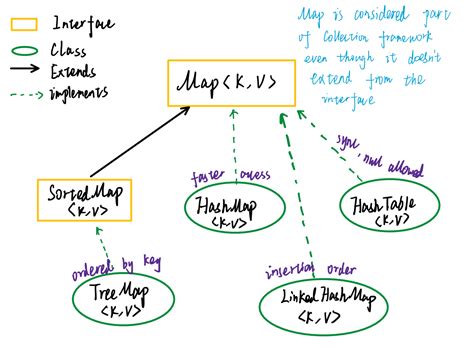 Interface
Class
Extends
implements
Map is considered part
of Collection framework
even though it doesn't
extend from the
interface
Map<K,V>
sync, null allowed
faster access
SortedMap
<K,V>
HashMap
<K,V>
HashTable
<K,V>
ordered by key
insertion order
TreeMap
<K,V>
LinkedHashMap
<K,V>